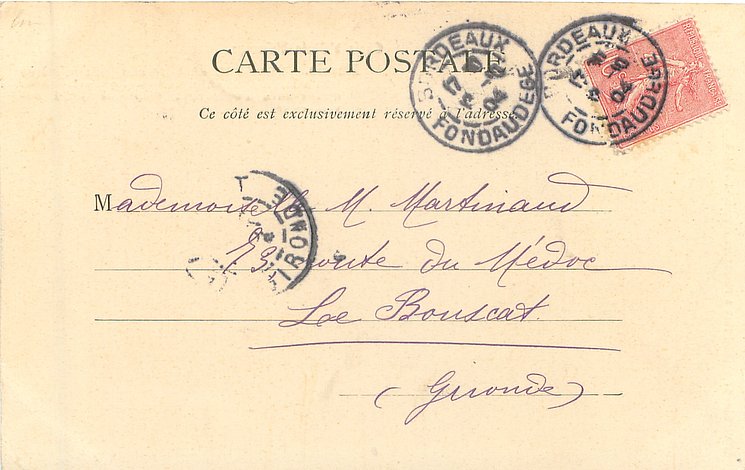 CARTE POSTALE
Ce côté est exclusivement réservé à l'adresse.
BORDEAUX
FONDAUDEGE
BORDEAUX
FONDAUDEGE
Mademoiselle M. Martinaud
73 route du Médoc
Le Bouscat.
(Gironde)
GIRONDE